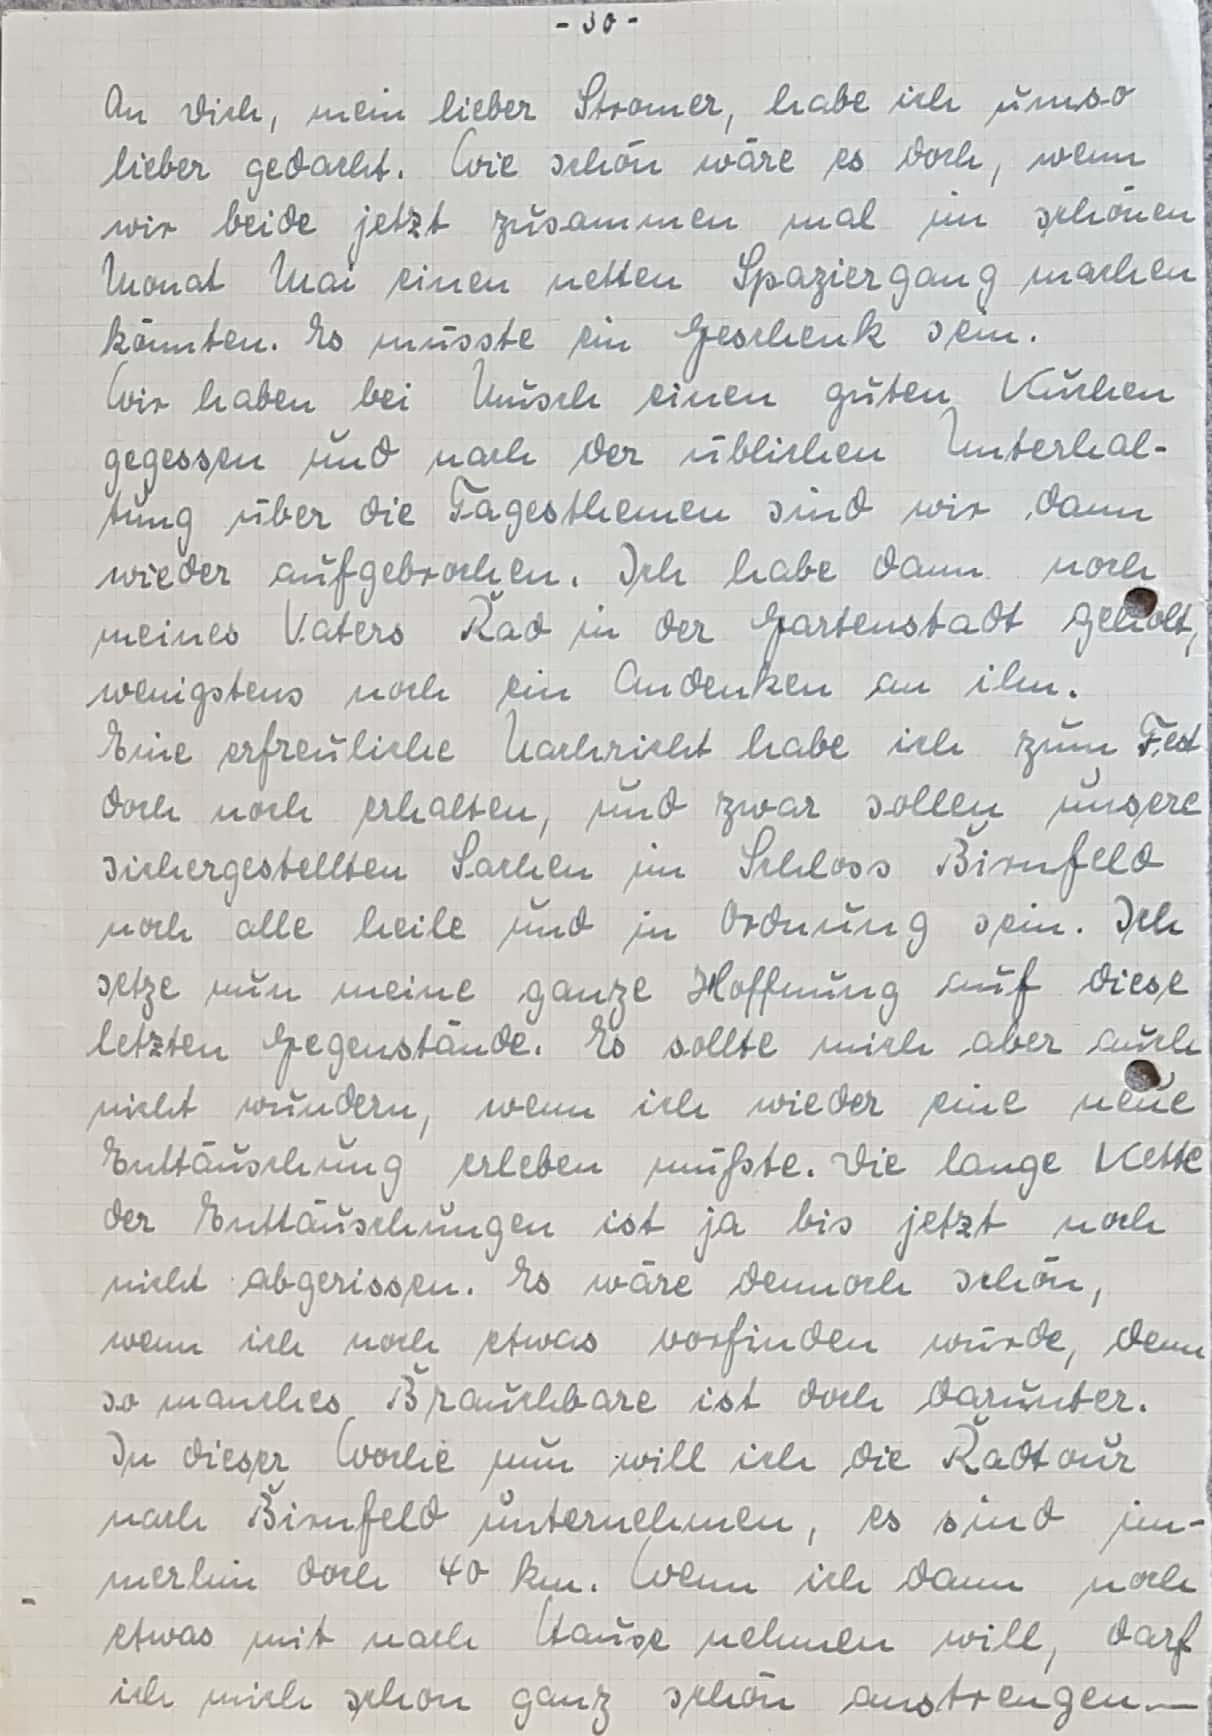 - 30 -
An Dich, mein lieber Stromer, habe ich umso
lieber gedacht. Wie schön wäre es doch, wenn
wir beide jetzt zusammen mal im schönen
Monat Mai einen netten Spaziergang machen
könnten. Es müsste ein Geschenk sein.
Wir haben bei Musch einen guten Kuchen
gegessen und nach der üblichen Unterhal-
tung über die Tagesthemen sind wir dann
wieder aufgebrochen. Ich habe dann noch
meines Vaters Rad in der Gartenstadt geholt,
wenigstens noch ein Andenken an ihn.
Eine erfreuliche Nachricht habe ich zum Fest
doch noch erhalten, und zwar sollen unsere
sichergestellten Sachen im Schloss Birnfeld
noch alle heile und in Ordnung sein. Ich
setze nun meine ganze Hoffnung auf diese
letzten Gegenstände. Es sollte mich aber auch
nicht wundern, wenn ich wieder eine neue
Enttäuschung erleben müßte. Die lange Kette
der Enttäuschungen ist ja bis jetzt noch
nicht abgerissen. Es wäre dennoch schön,
wenn ich noch etwas vorfinden würde, denn
so manches Brauchbare ist doch darunter.
In dieser Woche nun will ich die Radtour
nach Birnfeld unternehmen, es sind im-
merhin doch 40 km. Wenn ich dann noch
etwas mit nach Hause nehmen will, darf
ich mich schon ganz schön anstrengen. —